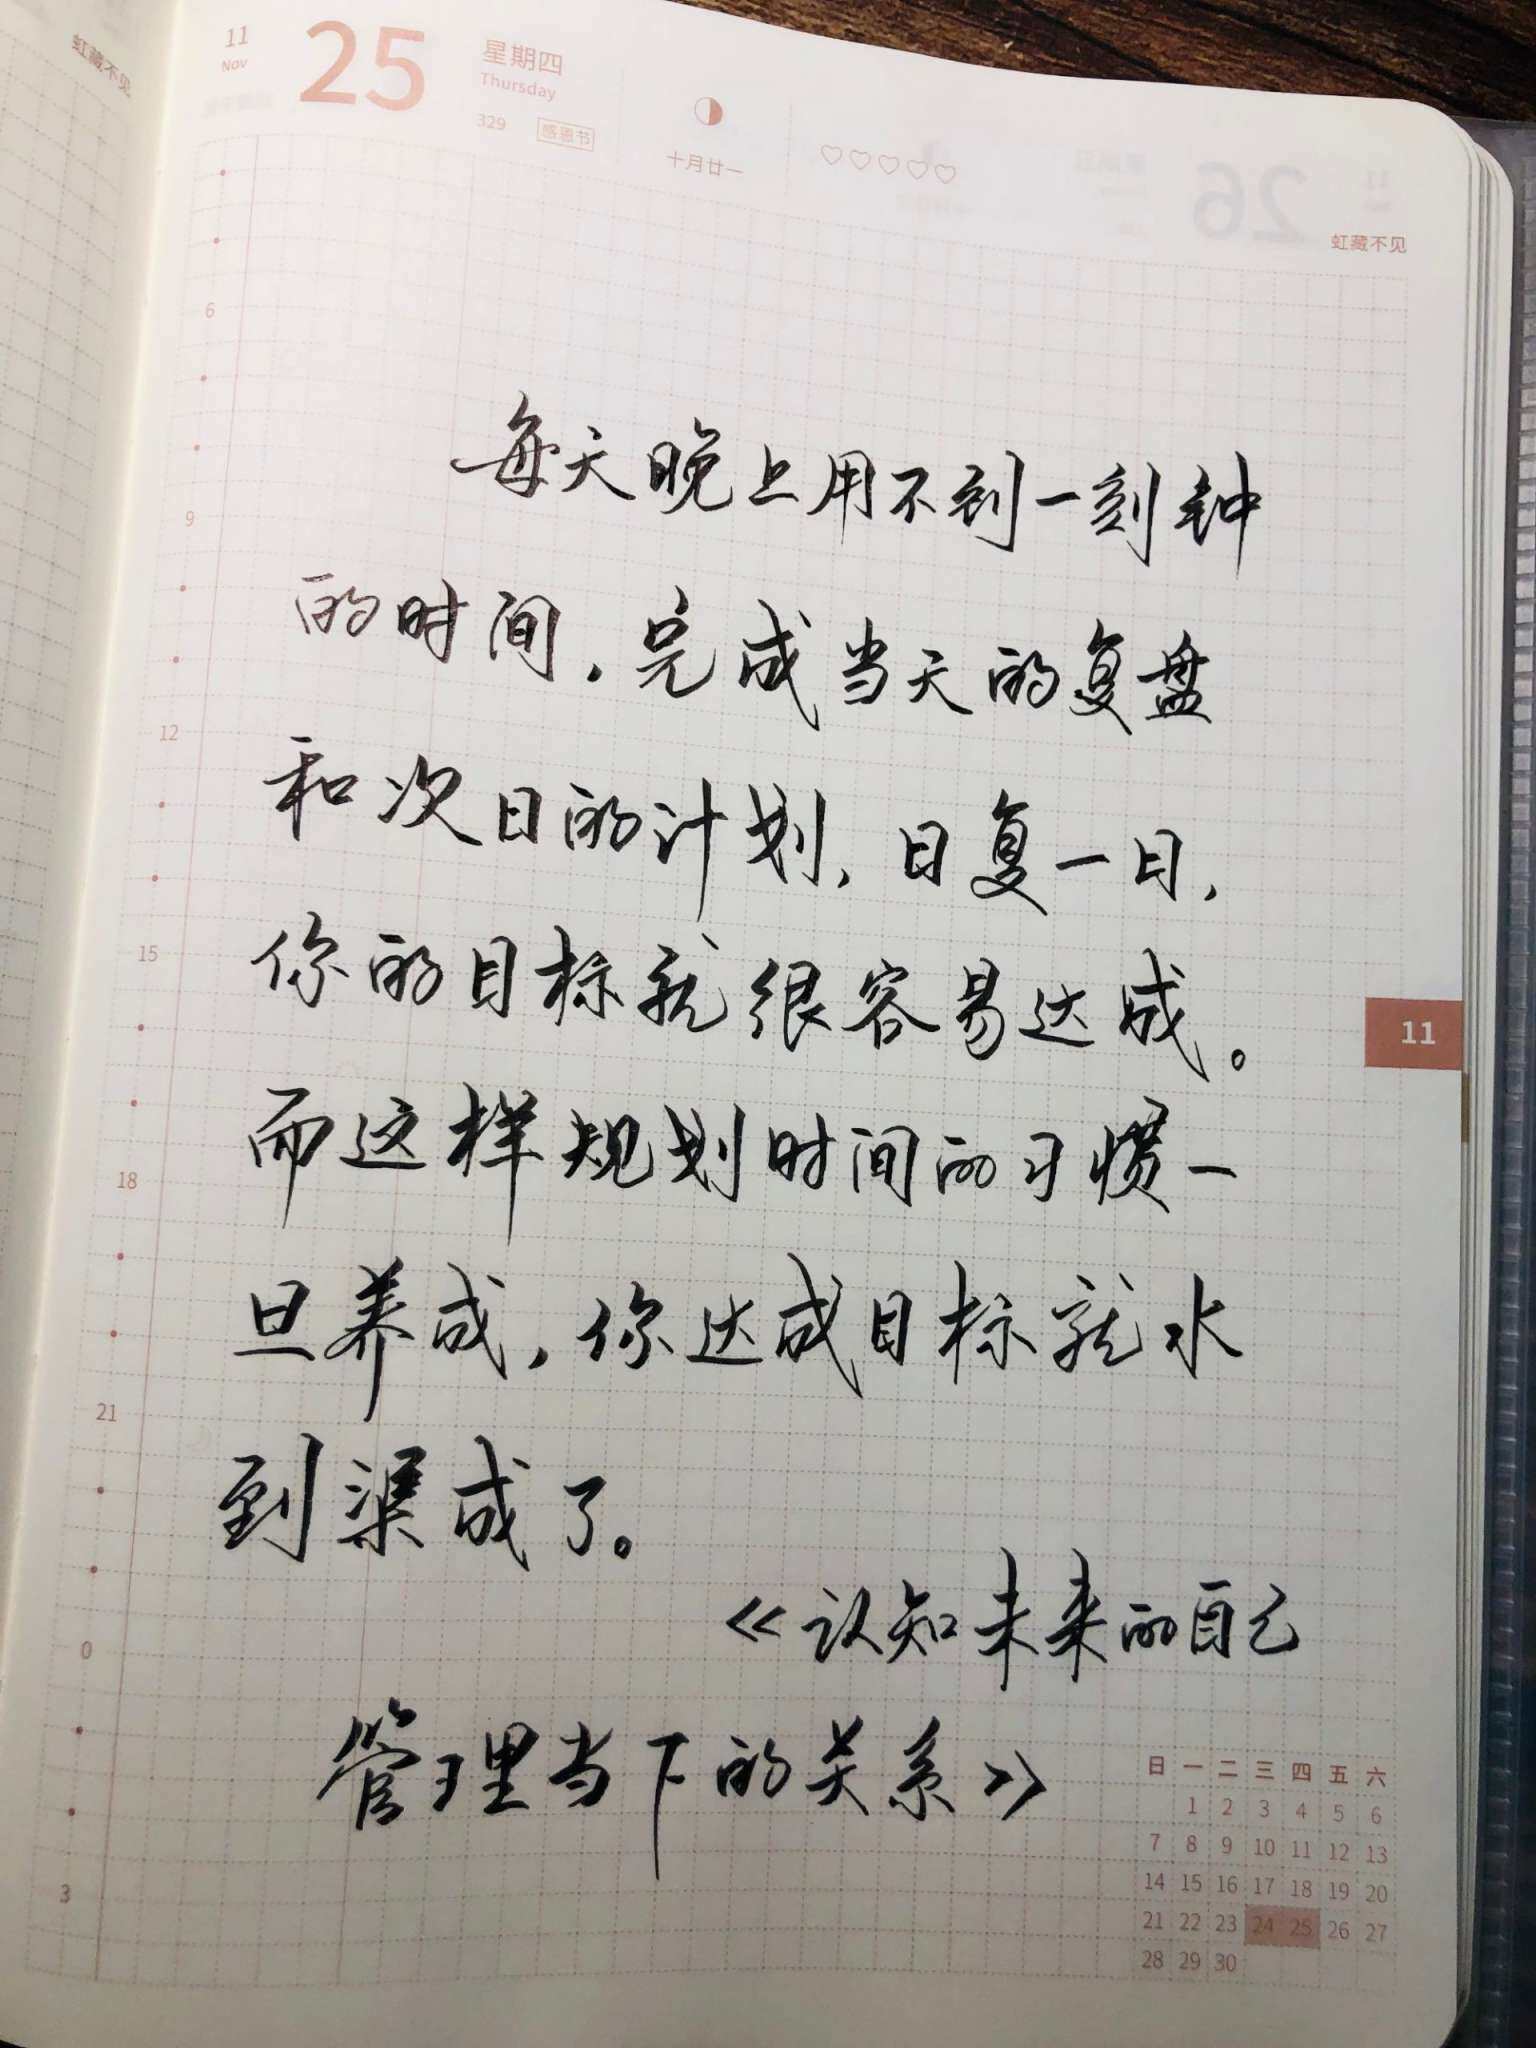 虹藏不见
11
Nov
25
星期四
Thursday
329 感恩节
十月廿一
虹藏不见
6
9
12
15
18
21
0
3
每天晚上用不到一刻钟
的时间，完成当天的复盘
和次日的计划，日复一日，
你的目标就很容易达成。
而这样规划时间的习惯一
旦养成，你达成目标就水
到渠成了。
《认知未来的自己
管理当下的关系》
11
日 一 二 三 四 五 六
1 2 3 4 5 6
7 8 9 10 11 12 13
14 15 16 17 18 19 20
21 22 23 24 25 26 27
28 29 30